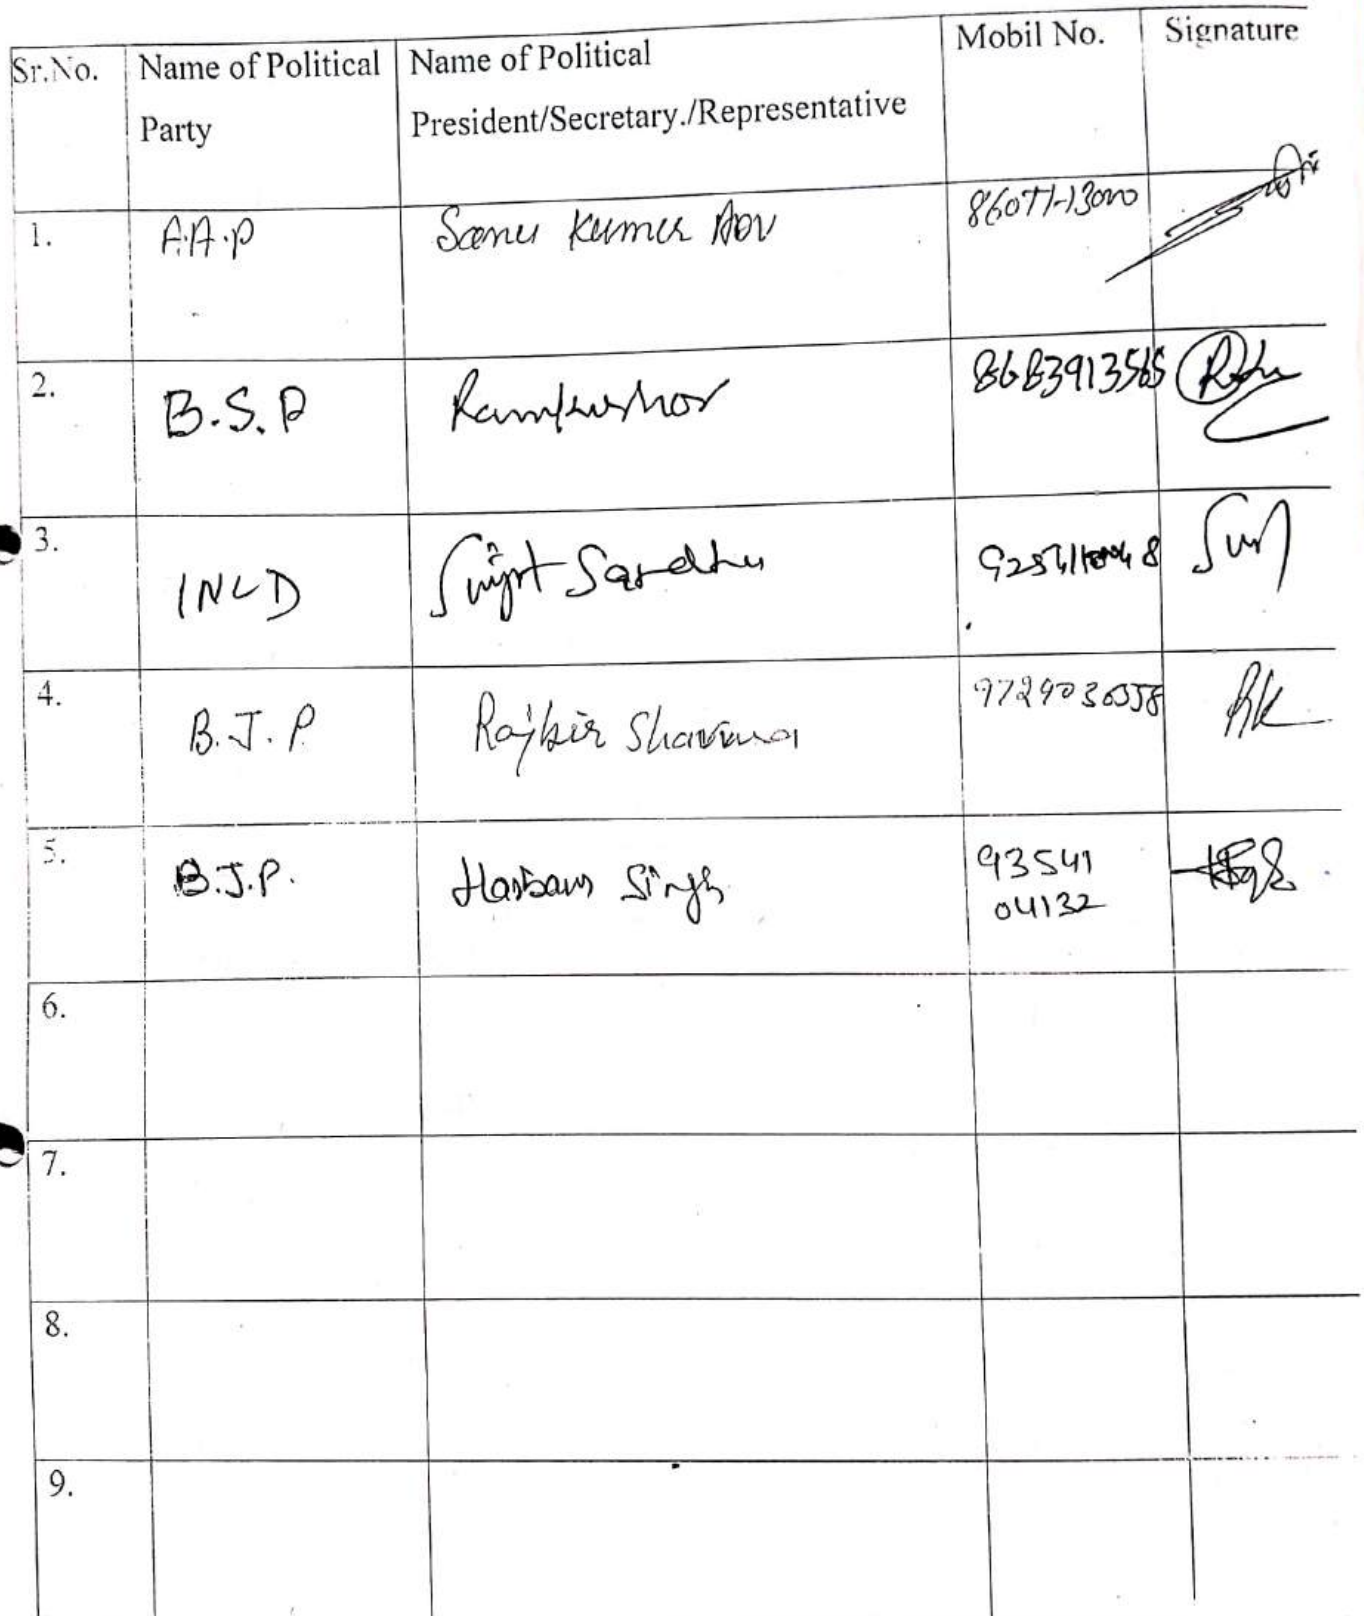 Sr.No. Name of Political Party Name of Political President/Secretary./Representative Mobil No. Signature
1. A.A.P Sonu Kumar Adv
2. B.S.P Ramkishor
3. INLD Surjit Sandhu
4. B.J.P Rajbir Sharma 9729030558
5. B.J.P. Harbans Singh 93541
04132
6.
7.
8.
9.